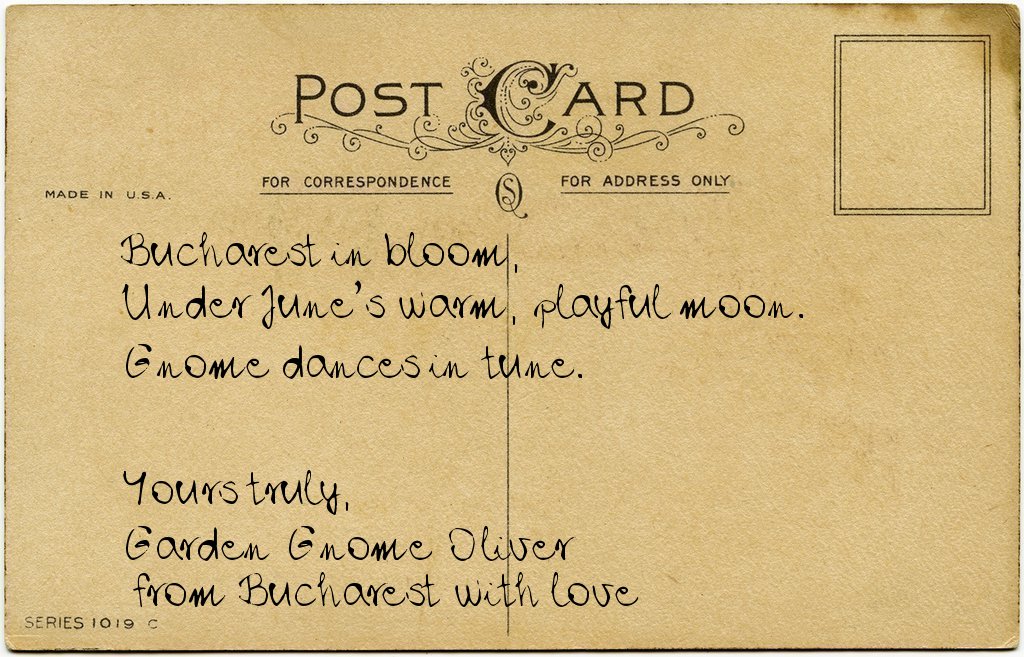 POST CARD
FOR CORRESPONDENCE
FOR ADDRESS ONLY
MADE IN U.S.A.
Bucharest in bloom,
Under June's warm, playful moon.
Gnome dances in tune.
Yours truly,
Garden Gnome Oliver
from Bucharest with love
SERIES 1019 C